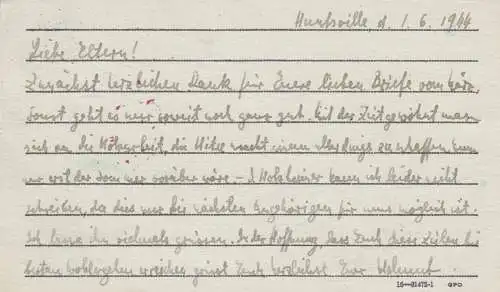 Huntsville, d. 1. 6. 1944
Liebe Eltern!
Zunächst herzlichen Dank für Euere lieben Briefe vom März.
Sonst geht es mir soweit noch ganz gut. Mit der Zeit gewöhnt man
sich an die Holzarbeit, die Hitze macht einem allerdings zu schaffen, wenn
nur erst der Sommer vorüber wäre. - J. Holzheimer kann ich leider nicht
schreiben, da dies nur bis nächsten Angehörigen für uns möglich ist.
Ich lasse ihn vielmals grüssen. In der Hoffnung, dass Euch diese Zeilen bei
bestem Wohlergehen erreichen grüsst Euch herzlichst Euer Helmut.
16—81475-1 GPO